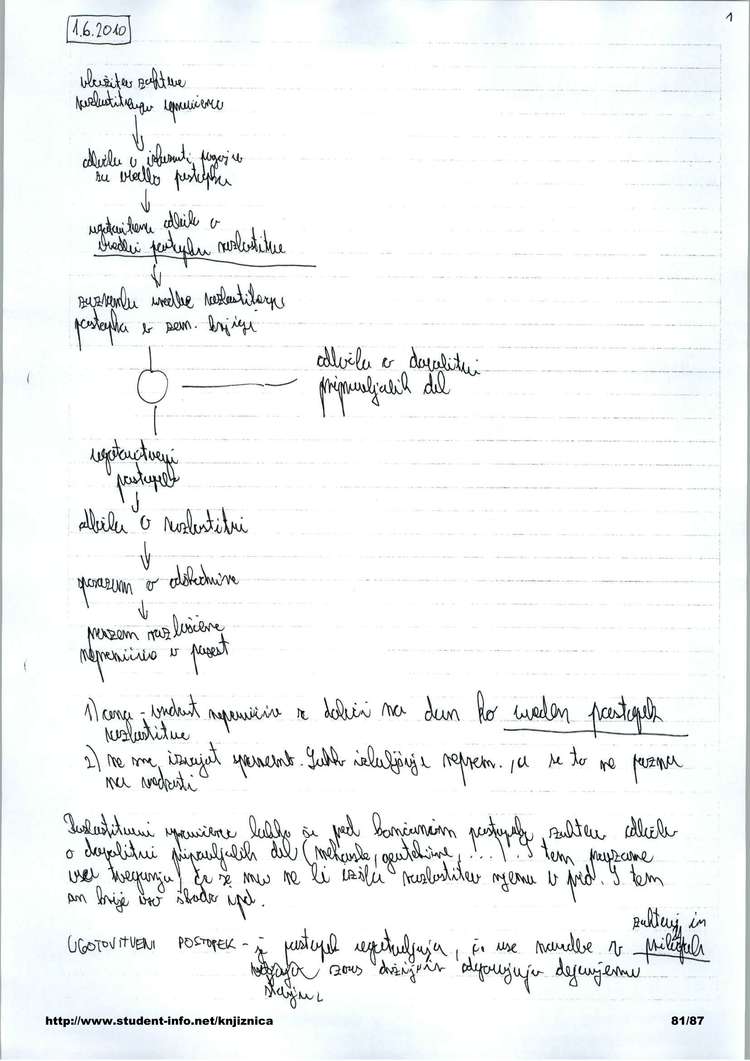 1
1.6.2010
vložitev zahteve
razlastitvenega upravičenca
odločba o izpolnjenosti pogojev
za uvedbo postopka
odločb o
uvedbi postopka razlastitve
zaznamba uvedbe razlastitvenega
postopka v zem. knjigi
odločba o dovolitvi
pripravljalnih del
ugotovitveni
postopek
odločba o razlastitvi
sporazum o odškodnini
prevzem razlaščene
nepremičnine v posest
1) cena - vrednost nepremičnine se določi na dan ko uveden postopek
razlastitve
2) ne sme izvajat sprememb. Lahko izboljšuje neprem., a se to ne pozna
na vrednosti
Razlastitveni upravičenec lahko že pred končanim postopkom zahteva odločbo
o dovolitvi pripravljalnih del (meritve, geotehnične, ...). S tem prevzame
vse tveganje, če se mu ne bi izšla razlastitev njemu v prid. S tem
on krije vso škodo ipd.
UGOTOVITVENI POSTOPEK - je postopek ugotavljanja, če vse navedbe v zahtevi in prilogah
dejanskemu
stanju
http://www.student-info.net/knjiznica
81/87